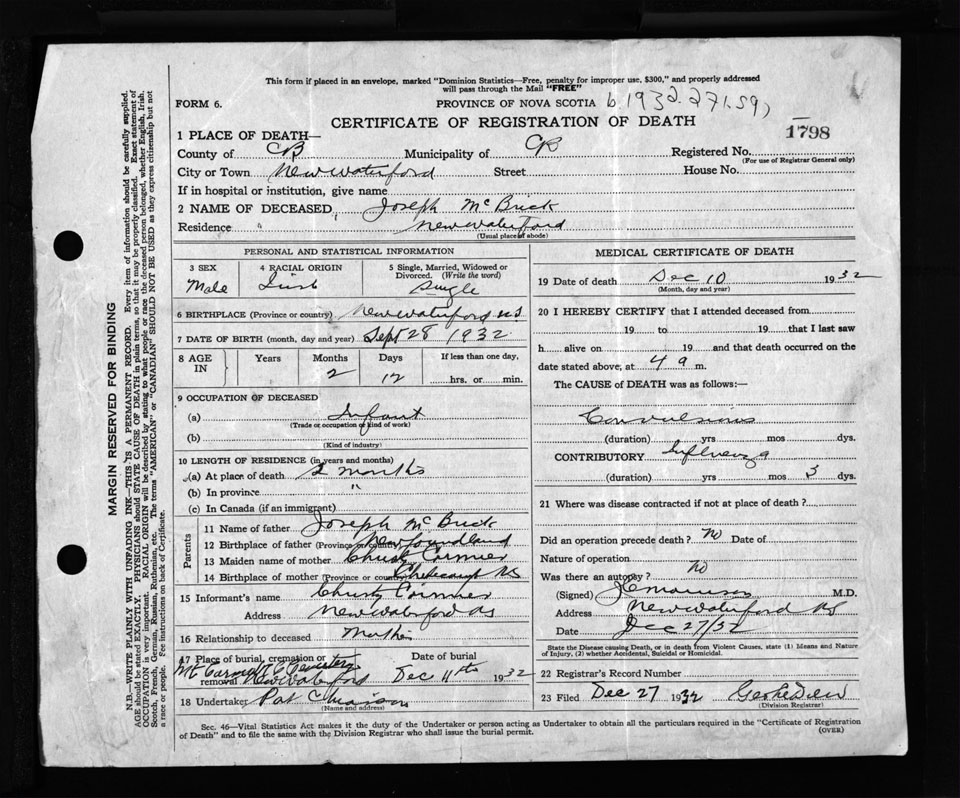 This form if placed in an envelope, marked "Dominion Statistics—Free, penalty for improper use, $300," and properly addressed
will pass through the Mail "FREE"
FORM 6. PROVINCE OF NOVA SCOTIA b. 1932.271.59
CERTIFICATE OF REGISTRATION OF DEATH
1798
1 PLACE OF DEATH—
County of CB Municipality of CB Registered No.
(For use of Registrar General only)
City or Town New Waterford Street House No.
If in hospital or institution, give name
2 NAME OF DECEASED Joseph Mc Brick
Residence New Waterford
(Usual place of abode)
PERSONAL AND STATISTICAL INFORMATION
3 SEX 4 RACIAL ORIGIN 5 Single, Married, Widowed or Divorced. (Write the word)
Male Irish Single
6 BIRTHPLACE (Province or country) New Waterford N.S
7 DATE OF BIRTH (month, day and year) Sept 28 1932
8 AGE IN Years Months Days If less than one day,
2 12 hrs. or min.
9 OCCUPATION OF DECEASED
(a) Infant
(Trade or occupation or kind of work)
(b)
(Kind of industry)
10 LENGTH OF RESIDENCE (in years and months)
(a) At place of death 2 months
(b) In province "
(c) In Canada (if an immigrant)
Parents
11 Name of father Joseph Mc Brick
12 Birthplace of father (Province or country) Newfoundland
13 Maiden name of mother Cormier
14 Birthplace of mother (Province or country) NS
15 Informant's name Cormier
Address New Waterford NS
16 Relationship to deceased Mother
17 Place of burial, cremation or removal Mt Carmel R C Cemetery New Waterford
Date of burial Dec 11th 1932
18 Undertaker Pat
(Name and address)
MEDICAL CERTIFICATE OF DEATH
19 Date of death Dec 10 1932
(Month, day and year)
20 I HEREBY CERTIFY that I attended deceased from
19 to 19 that I last saw
h alive on 19 and that death occurred on the
date stated above, at 4 a m.
The CAUSE of DEATH was as follows:—
Convulsions
(duration) yrs mos dys.
CONTRIBUTORY Influenza
(duration) yrs mos 3 dys.
21 Where was disease contracted if not at place of death?
Did an operation precede death? No Date of
Nature of operation
Was there an autopsy? No
(Signed) M.D.
Address New Waterford NS
Date Dec 27/32
State the Disease causing Death, or in death from Violent Causes, state (1) Means and Nature
of Injury, (2) whether Accidental, Suicidal or Homicidal.
22 Registrar's Record Number
23 Filed Dec 27 1932
(Division Registrar)
Sec. 46—Vital Statistics Act makes it the duty of the Undertaker or person acting as Undertaker to obtain all the particulars required in the "Certificate of Registration
of Death" and to file the same with the Division Registrar who shall issue the burial permit. (OVER)
MARGIN RESERVED FOR BINDING
N.B.—WRITE PLAINLY WITH UNFADING INK—THIS IS A PERMANENT RECORD. Every item of information should be carefully supplied.
AGE should be stated EXACTLY. PHYSICIANS should STATE CAUSE OF DEATH in plain terms, so that it may be properly classified. Exact statement of
OCCUPATION is very important. RACIAL ORIGIN will be described by stating to what people or race the deceased person belonged, whether English, Irish,
Scotch, French, German, Russian, Ruthenian, etc. The terms "AMERICAN" or "CANADIAN" SHOULD NOT BE USED as they express citizenship but not
a race or people. See instructions on back of Certificate.